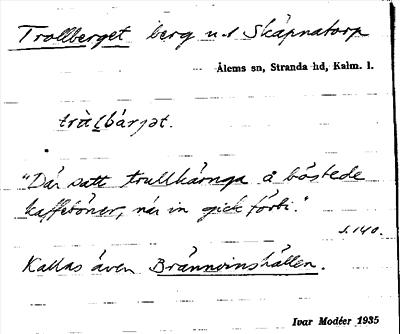 Trollberget berg u.t Skäpnatorp
Ålems sn, Stranda hd, Kalm. l.
tràlbárjət.
"Där satt trullkärnga å böstede
kaffebőner, när in gick förbi."
s. 140.
Kallas även Brännvinshällen.
Ivar Modéer 1935